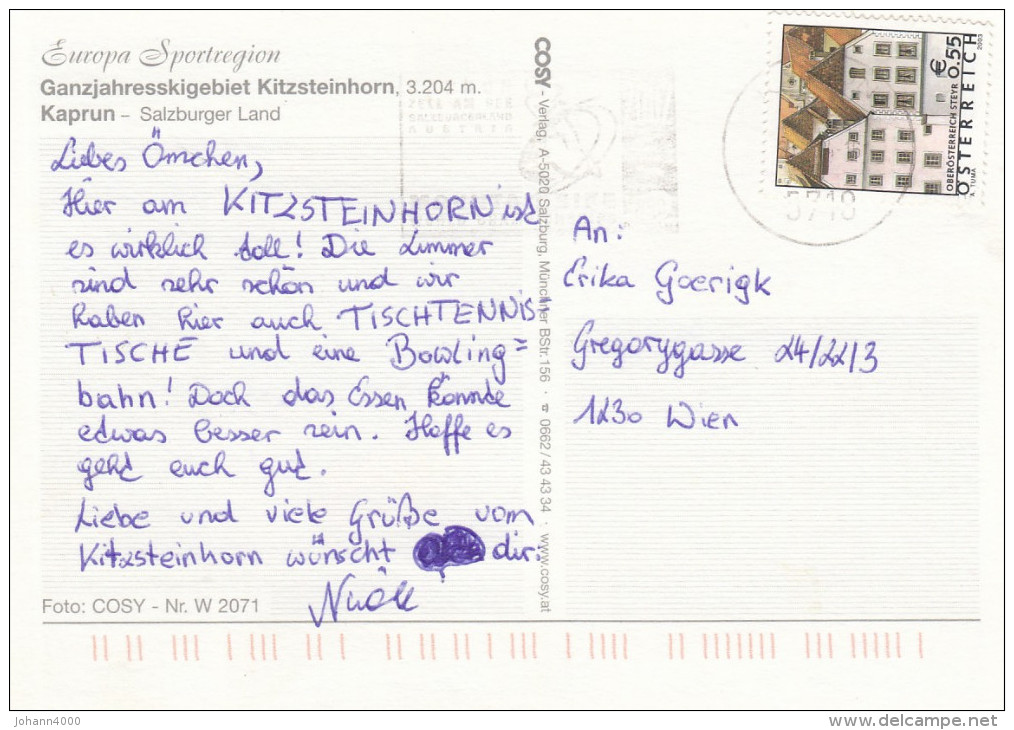 Europa Sportregion
Ganzjahresskigebiet Kitzsteinhorn, 3.204 m.
Kaprun – Salzburger Land
Liebes Ömchen,
Hier am KITZSTEINHORN ist
es wirklich toll! Die Zimmer
sind sehr schön und wir
haben hier auch TISCHTENNIS
TISCHE und eine Bowling=
bahn! Doch das Essen könnte
etwas besser sein. Hoffe es
geht euch gut.
Liebe und viele Grüße vom
Kitzsteinhorn wünscht dir:
Foto: COSY - Nr. W 2071
COSY - Verlag, A-5020 Salzburg, Münchner BStr. 156 · ☎ 0662/43 43 34 · www.cosy.at
ZELL AM SEE
SALZBURGERLAND
AUSTRIA
5710
€ 0.55
2003
OBERÖSTERREICH STEYR
ÖSTERREICH
A. TUMA
An:
Erika Goerigk
Gregorygasse 24/22/3
1230 Wien
Johann4000
www.delcampe.net